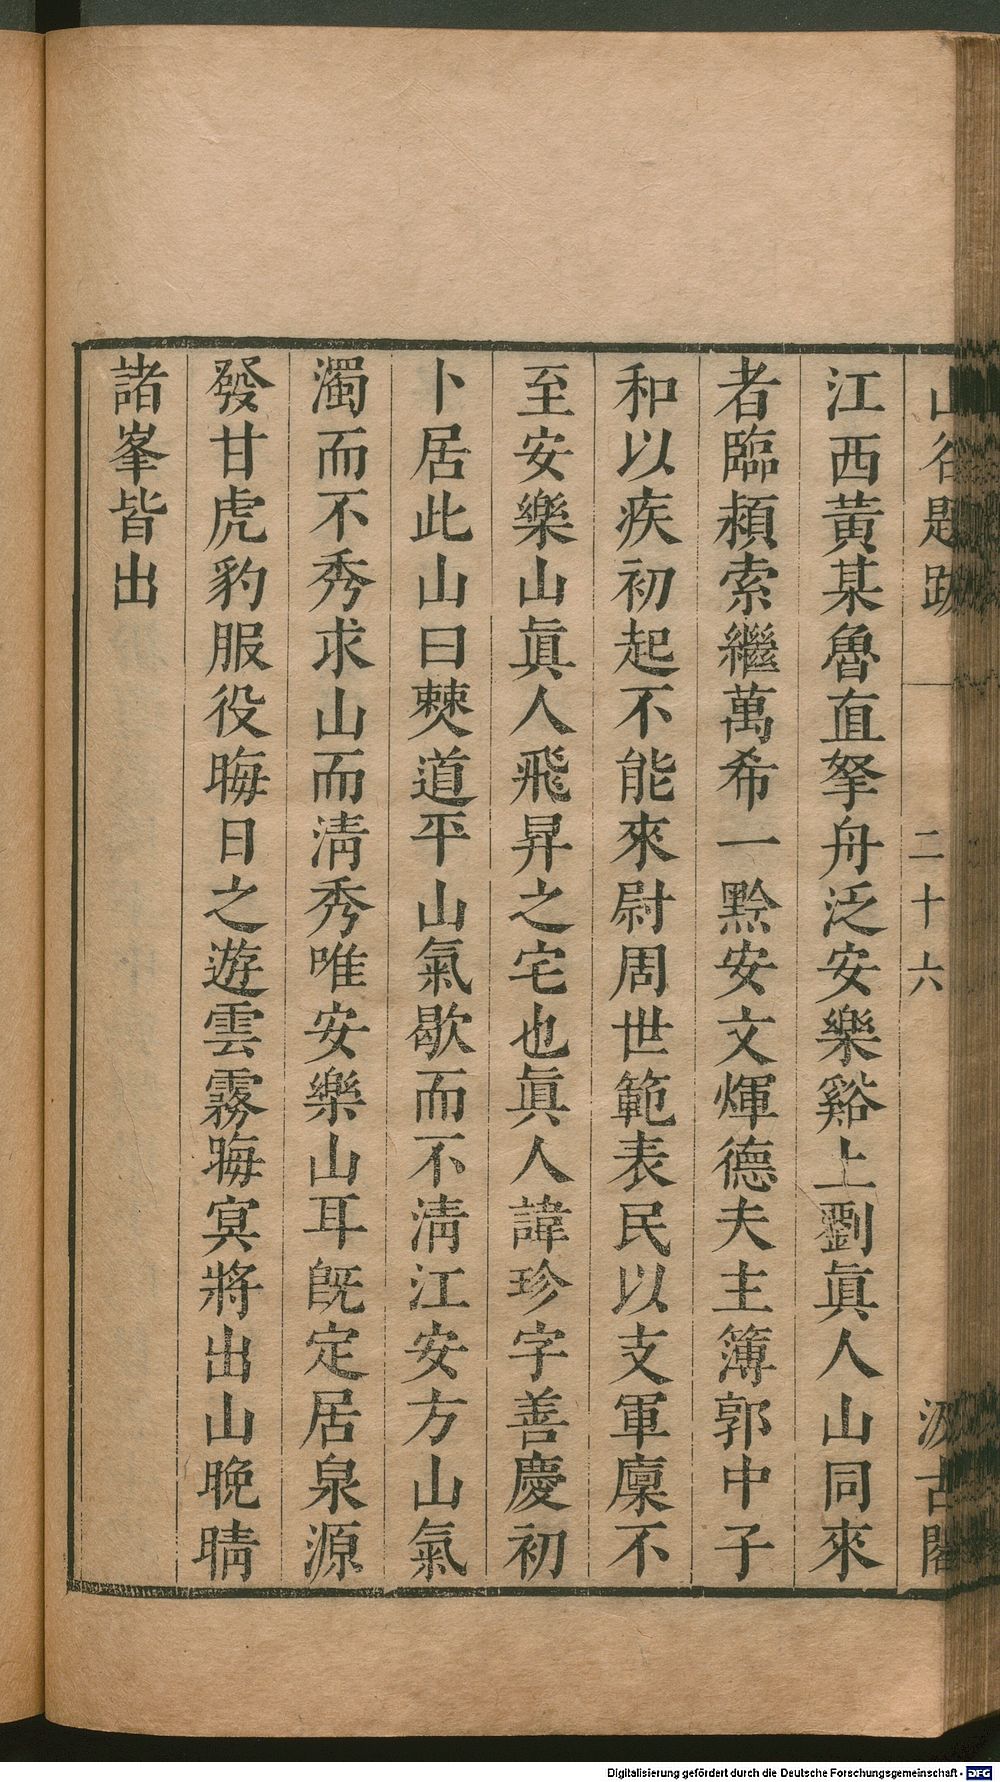 山谷題跋 二十六 汲古閣
江西黃某魯直拏舟泛安樂谿上劉眞人山同來
者臨潁索繼萬希一黔安文煇德夫主簿郭中子
和以疾初起不能來尉周世範表民以支軍廩不
至安樂山眞人飛昇之宅也眞人諱珍字善慶初
卜居此山曰僰道平山氣歇而不淸江安方山氣
濁而不秀求山而淸秀唯安樂山耳旣定居泉源
發甘虎豹服役晦日之遊雲霧晦冥將出山晚晴
諸峯皆出
Digitalisierung gefördert durch die Deutsche Forschungsgemeinschaft - DFG